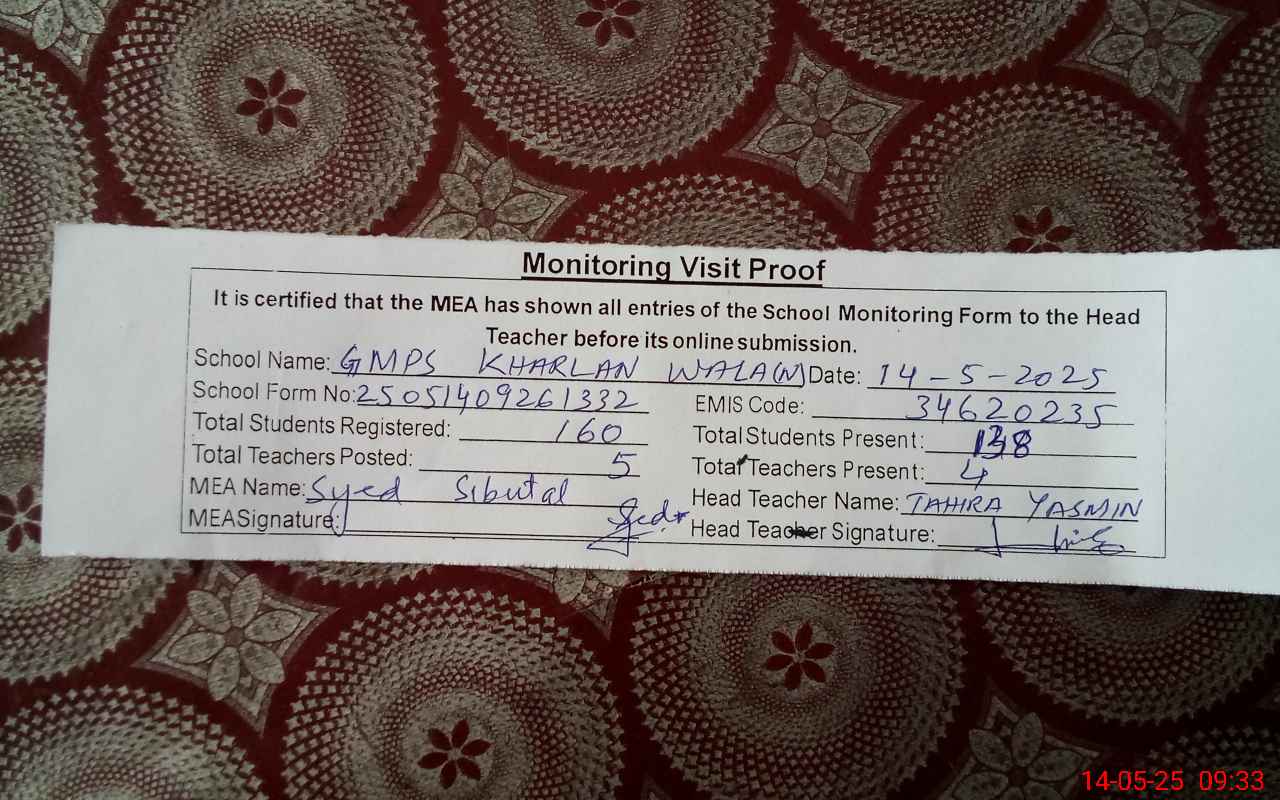 Monitoring Visit Proof
It is certified that the MEA has shown all entries of the School Monitoring Form to the Head
Teacher before its online submission.
School Name: GMPS KHARLAN WALA(N) Date: 14-5-2025
School Form No: 25051409261332 EMIS Code: 34620235
Total Students Registered: 160 Total Students Present: 138
Total Teachers Posted: 5 Total Teachers Present: 4
MEA Name: Syed Sibutal Head Teacher Name: TAHIRA YASMIN
MEASignature: Head Teacher Signature:
14-05-25 09:33